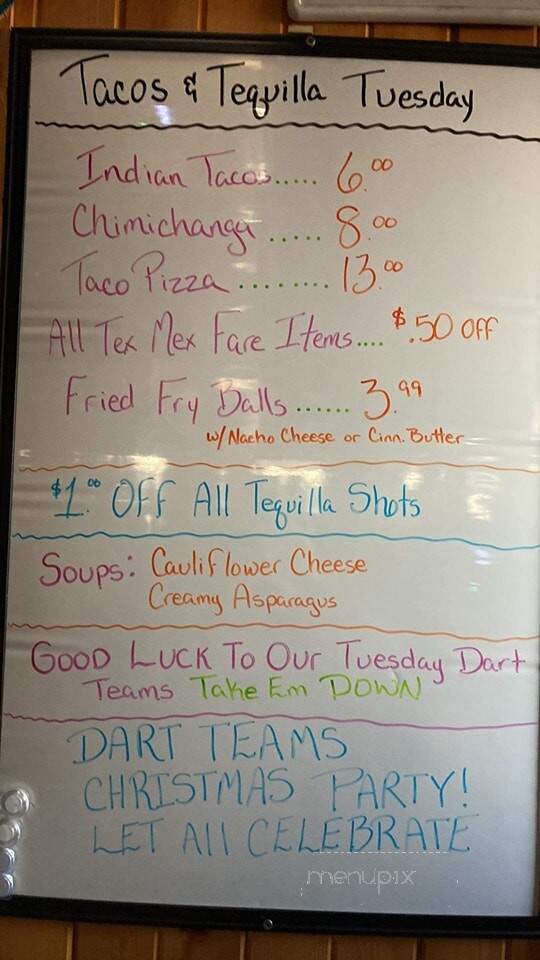 Tacos & Tequilla Tuesday
Indian Tacos..... 6.00
Chimichanga ..... 8.00
Taco Pizza ........ 13.00
All Tex Mex Fare Items.... $.50 OFF
Fried Fry Balls ...... 3.99
w/ Nacho Cheese or Cinn. Butter
$1.00 OFF All Tequilla Shots
Soups: Cauliflower Cheese
Creamy Asparagus
Good Luck To Our Tuesday Dart
Teams Take Em DOWN
DART TEAMS
CHRISTMAS PARTY!
LET All CELEBRATE
menupix